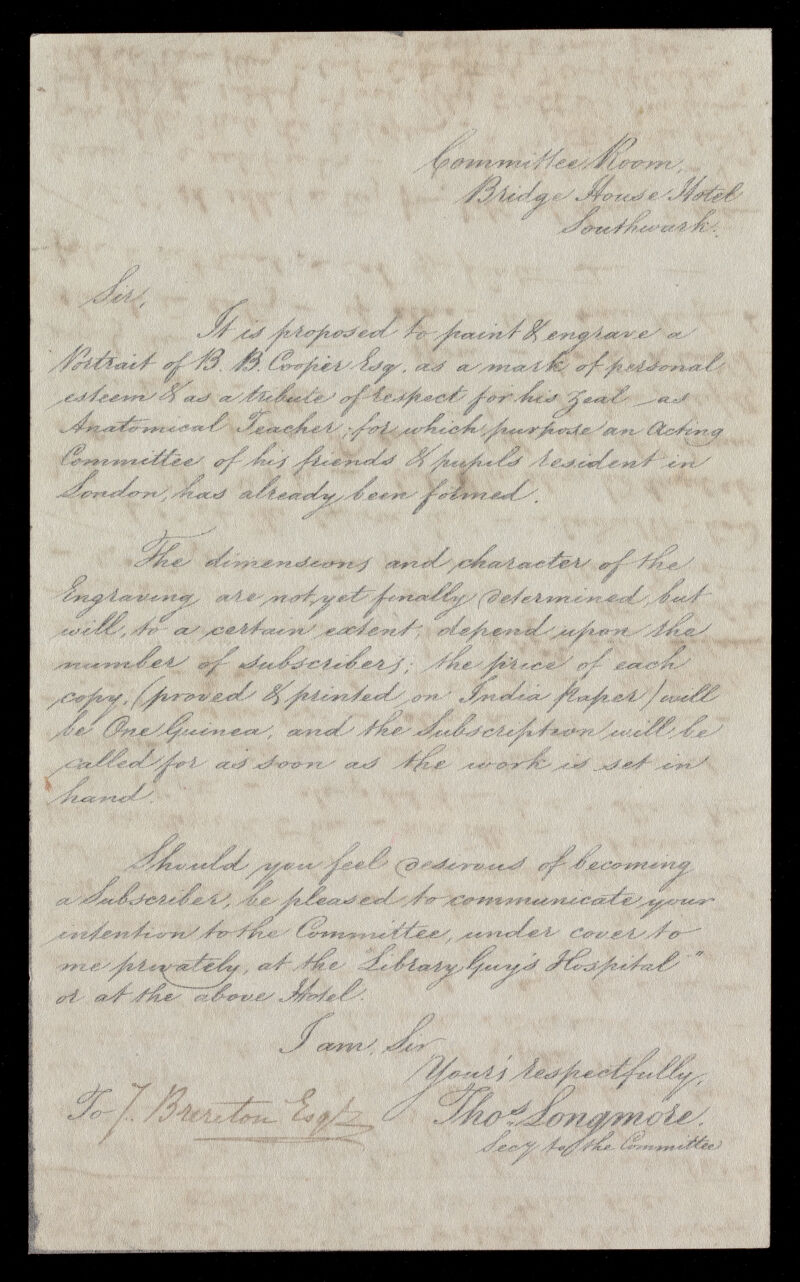 Committee Room,
Bridge House Hotel
Southwark.
Sir,
It is proposed to paint & engrave a
Portrait of B. B. Cooper Esq. as a mark of personal
esteem & as a tribute of respect for his zeal as
Anatomical Teacher; for which purpose an Acting
Committee of his friends & pupils resident in
London, has already been formed.
The dimensions and character of the
Engraving are not yet finally determined, but
will, to a certain extent, depend upon the
number of subscribers; the price of each
copy, (proved & printed on India Paper) will
be One Guinea, and the Subscription will be
called for as soon as the work is set in
hand.
Should you feel desirous of becoming
a Subscriber, be pleased to communicate your
intention to the Committee, under cover to
me privately, at the "Library, Guy's Hospital"
or at the above Hotel.
I am, Sir
Your's respectfully,
Thos. Longmore.
Secy to the Committee
To J. Brereton Esqr